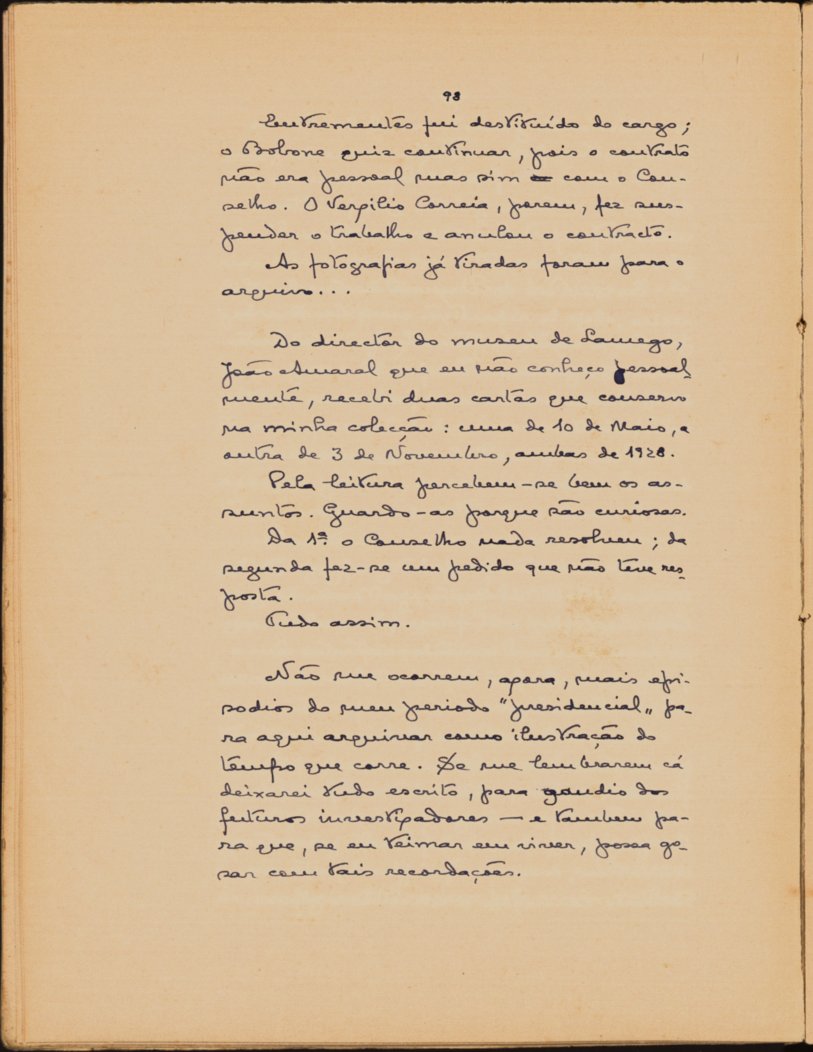 93
Entrementes fui destituído do cargo;
o Bobone quiz continuar, pois o contrato
não era pessoal mas sim com o Con-
selho. O Vergilio Correia, porem, fez sus-
pender o trabalho e anulou o contracto.
As fotografias já tiradas foram para o
arquivo...
Do director do museu de Lamego,
João Amaral que eu não conheço pessoal-
mente, recebi duas cartas que conservo
na minha colecção: uma de 10 de Maio, a
outra de 3 de Novembro, ambas de 1928.
Pela leitura percebem-se bem os as-
suntos. Guardo-as porque são curiosas.
Da 1ª o Conselho nada resolveu; da
segunda fez-se um pedido que não teve res-
posta.
Tudo assim.
Não me ocorrem, agora, mais epi-
sodios do meu periodo "presidencial" pa-
ra aqui arquivar como ilustração do
tempo que corre. Se me lembrarem cá
deixarei tudo escrito, para gaudio dos
futuros investigadores — e tambem pa-
ra que, se eu teimar em viver, possa go-
sar com tais recordações.